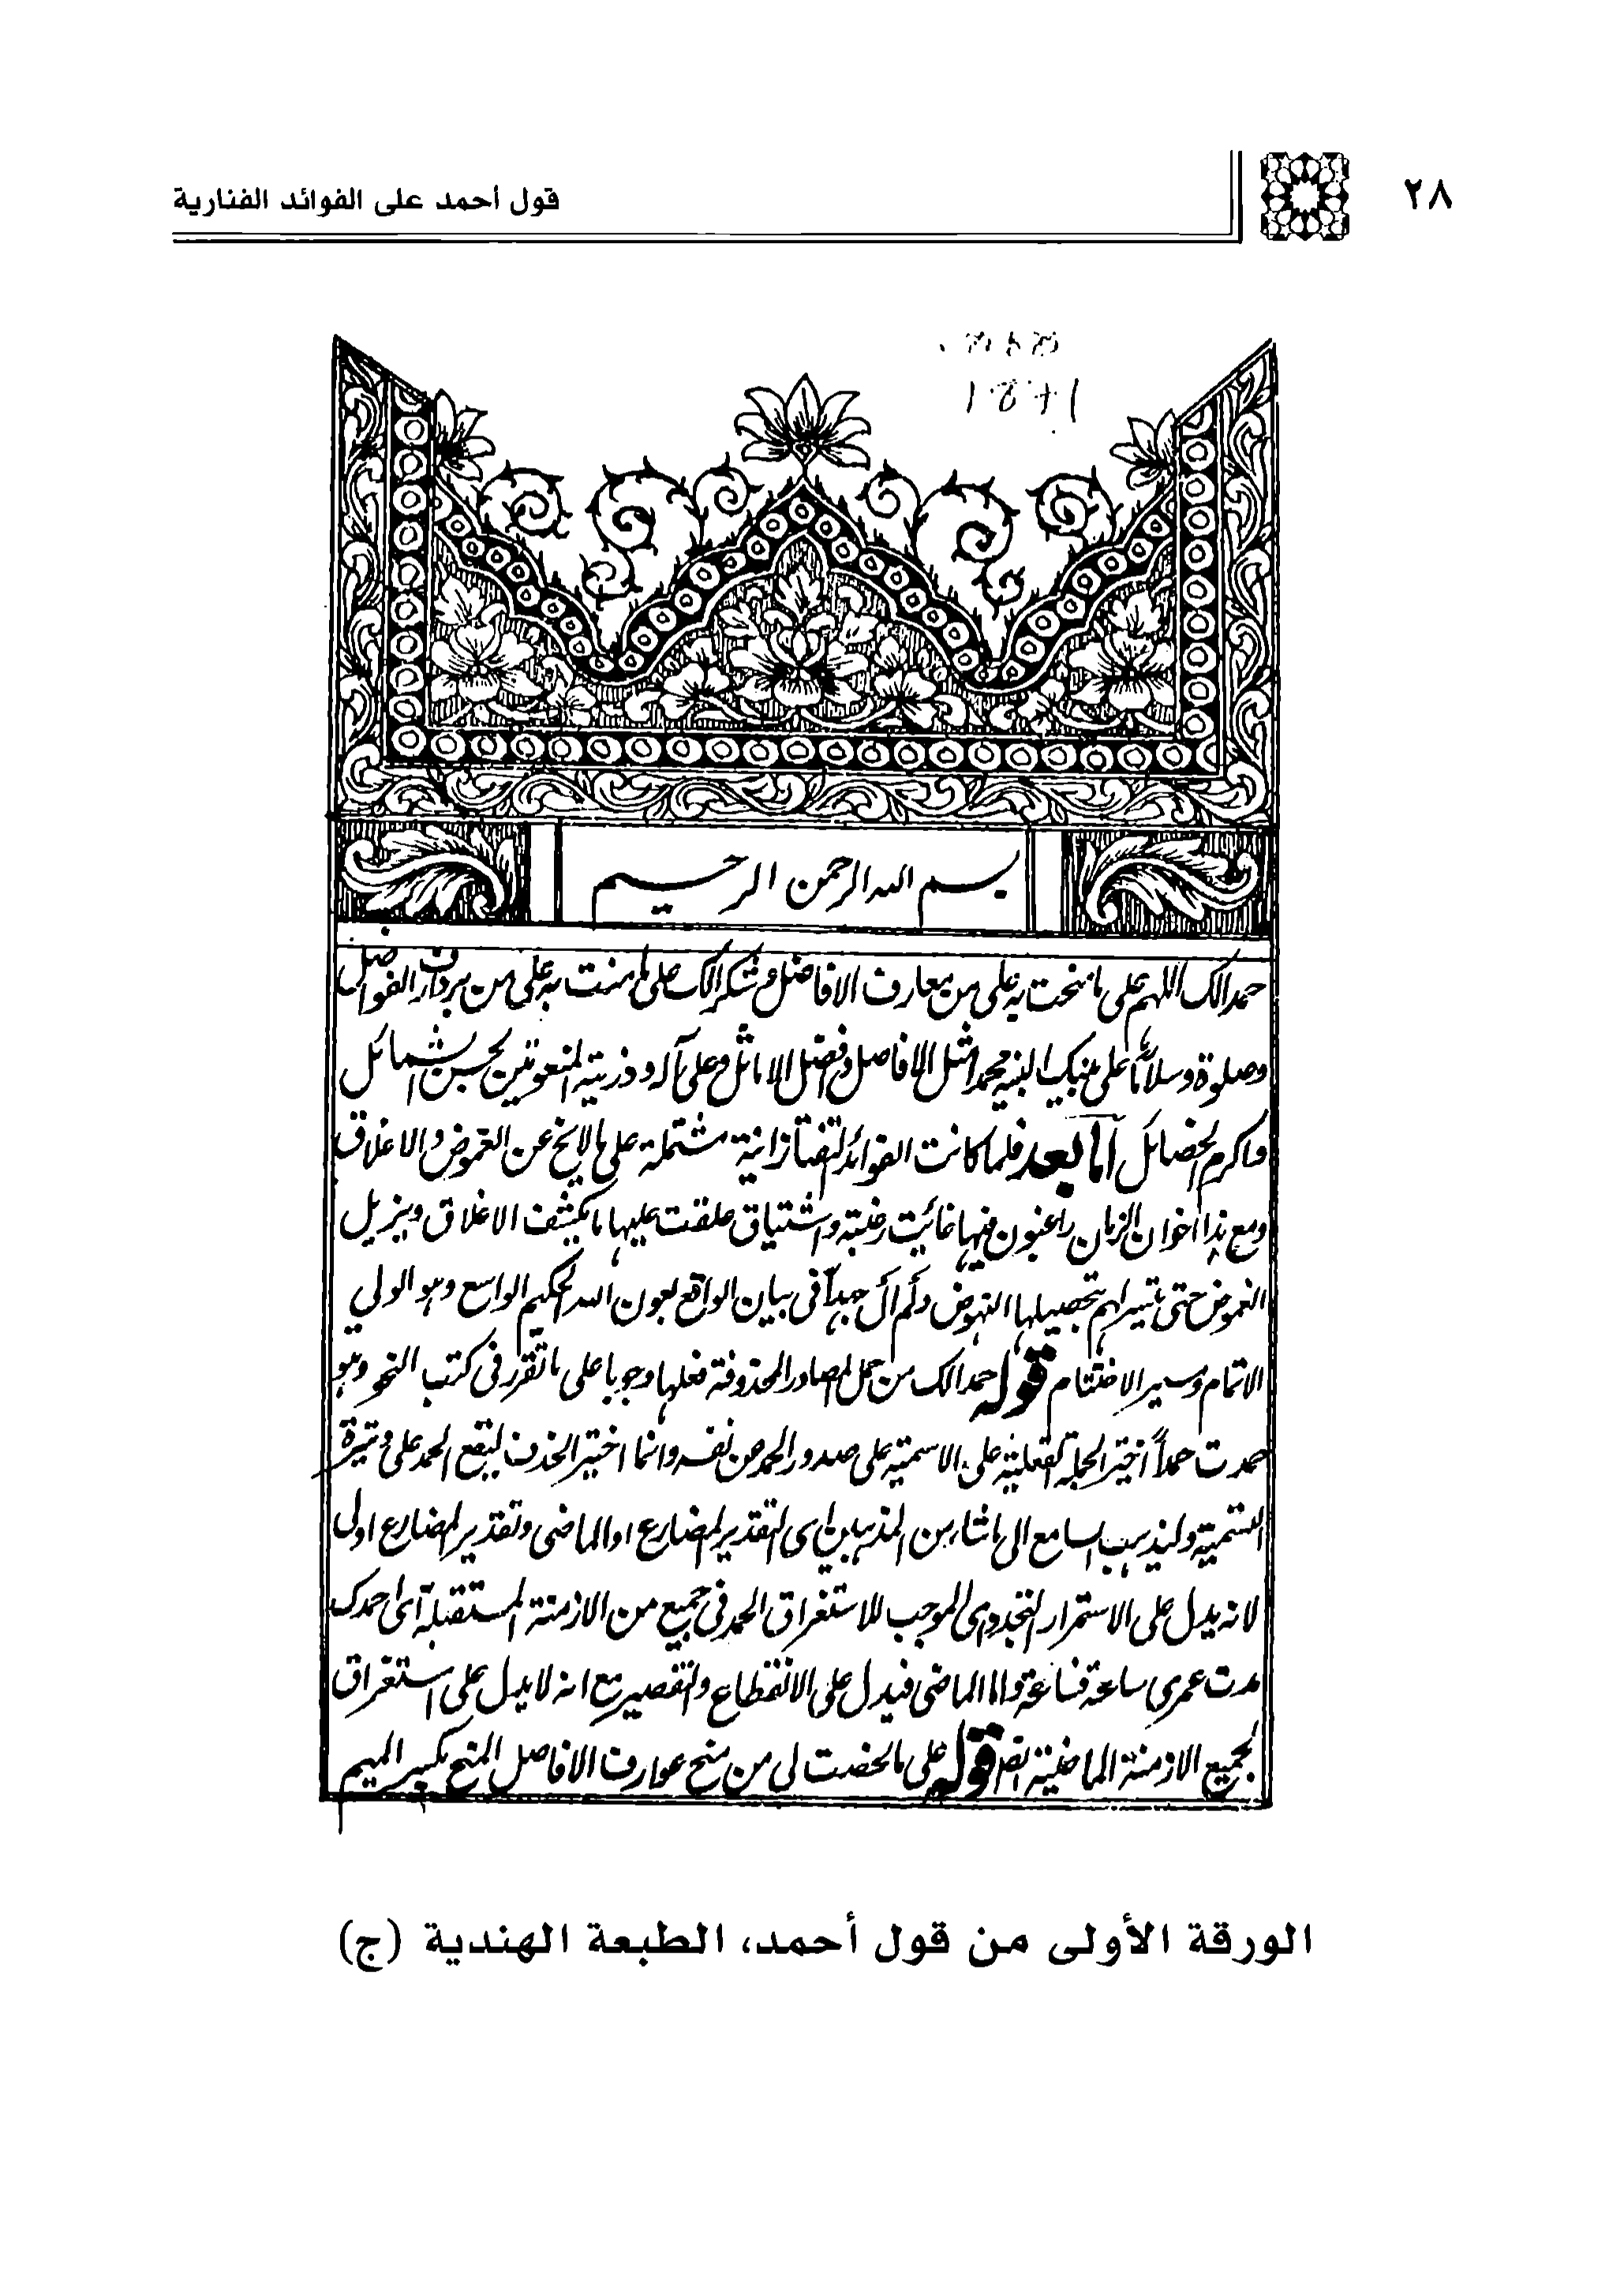 ٢٨
قول أحمد على الفوائد الفنارية
بسم الله الرحمن الرحيم
حمدا لك اللهم على ما منحت به على من معارف الافاضل وشكرا لك على ما مننت به على من الفواضل
وصلوة وسلاما على نبيك النبيه محمد امثل الافاضل وافضل الاماثل وعلى آله وذريته المنعوتين بحسن الشمائل
واكرم الخصائل اما بعد فلما كانت الفوائد التفتازانية مشتملة على ما لا يخ عن الغموض والاغلاق
ومع هذا اخوان الزمان راغبون فيها غائيت رغبة واشتياق علقت عليها ما يكشف الاغلاق ويزيل
الغموض حتى تيسر لهم بتحصيلها النهوض ولم آل جهدا فى بيان الواقع بعون الله الحكيم الواسع وهو الولي
الاتمام وميسر الاختتام قوله حمدا لك من جمل المصادر المحذوفة فعلها وجوبا على ما تقرر فى كتب النحو وهو
حمدت حمداً اختير الجملة الفعلية على الاسمية على صدور الحمد من نفسه وانما اختير الحذف ليقع الحمد على وتيرة
التسمية وليذهب السامع الى ما شاء من المذهبين اى التقدير المضارع او الماضى وتقدير المضارع اولى
لانه يدل على الاستمرار التجددى الموجب للاستغراق الحمد فى جميع من الازمنة المستقبلة اى احمدك
مدت عمرى ساعة فساعة واما الماضى فيدل على الانقطاع والتقصير مع انه لا يدل على استغراق
لجميع الازمنة الماضية ايضا قوله على ما لخصت لى من منح عوارف الافاضل المنح بكسر الميم
الورقة الأولى من قول أحمد، الطبعة الهندية (ج)